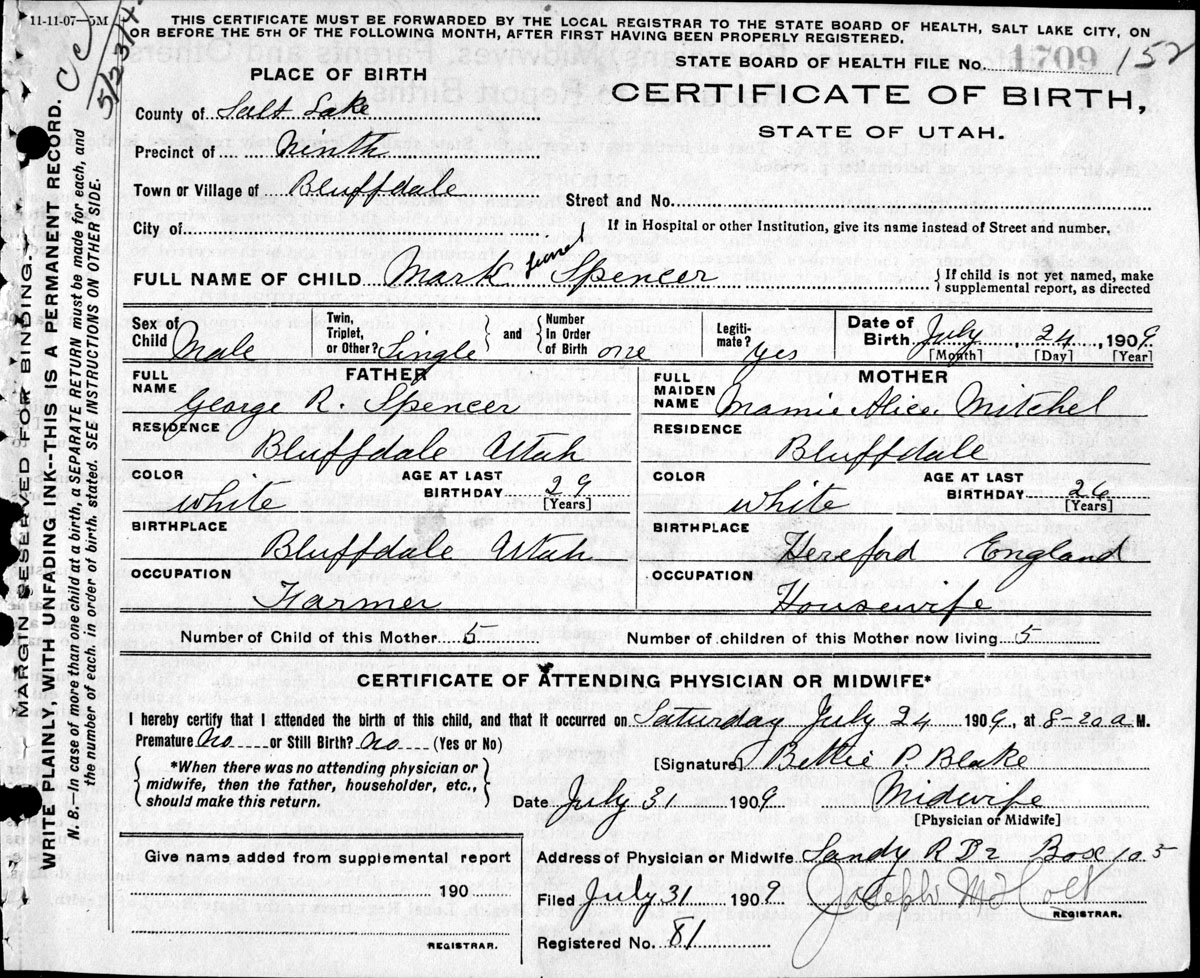 11-11-07—5M
THIS CERTIFICATE MUST BE FORWARDED BY THE LOCAL REGISTRAR TO THE STATE BOARD OF HEALTH, SALT LAKE CITY, ON
OR BEFORE THE 5TH OF THE FOLLOWING MONTH, AFTER FIRST HAVING BEEN PROPERLY REGISTERED.
STATE BOARD OF HEALTH FILE No. 1709 152
CERTIFICATE OF BIRTH,
STATE OF UTAH.
PLACE OF BIRTH
County of Salt Lake
Precinct of Ninth
Town or Village of Bluffdale
Street and No.
City of
If in Hospital or other Institution, give its name instead of Street and number.
FULL NAME OF CHILD Mark Spencer
{If child is not yet named, make
supplemental report, as directed
Sex of Child Male
Twin, Triplet, or Other? Single
and
Number In Order of Birth one
Legiti-mate? yes
Date of Birth July 24, 1909.
[Month] [Day] [Year]
FATHER
FULL NAME George R. Spencer
RESIDENCE
Bluffdale Utah
COLOR white
AGE AT LAST BIRTHDAY 29
[Years]
BIRTHPLACE
Bluffdale Utah
OCCUPATION
Farmer
MOTHER
FULL MAIDEN NAME Mamie Alice Mitchel
RESIDENCE
Bluffdale
COLOR white
AGE AT LAST BIRTHDAY 26
[Years]
BIRTHPLACE
Hereford England
OCCUPATION
Housewife
Number of Child of this Mother 5
Number of children of this Mother now living 5
CERTIFICATE OF ATTENDING PHYSICIAN OR MIDWIFE*
I hereby certify that I attended the birth of this child, and that it occurred on Saturday July 24 1909, at 8-20 a M.
Premature no or Still Birth? no (Yes or No)
*When there was no attending physician or
midwife, then the father, householder, etc.,
should make this return.
[Signature] Bettie P. Blake
Date July 31 1909
Midwife
[Physician or Midwife]
Give name added from supplemental report
190
REGISTRAR.
Address of Physician or Midwife Sandy R D 2 Box 105
Filed July 31 1909
REGISTRAR.
Registered No. 81
MARGIN RESERVED FOR BINDING.
WRITE PLAINLY, WITH UNFADING INK--THIS IS A PERMANENT RECORD.
N. B.—In case of more than one child at a birth, a SEPARATE RETURN must be made for each, and
the number of each, in order of birth, stated. SEE INSTRUCTIONS ON OTHER SIDE.